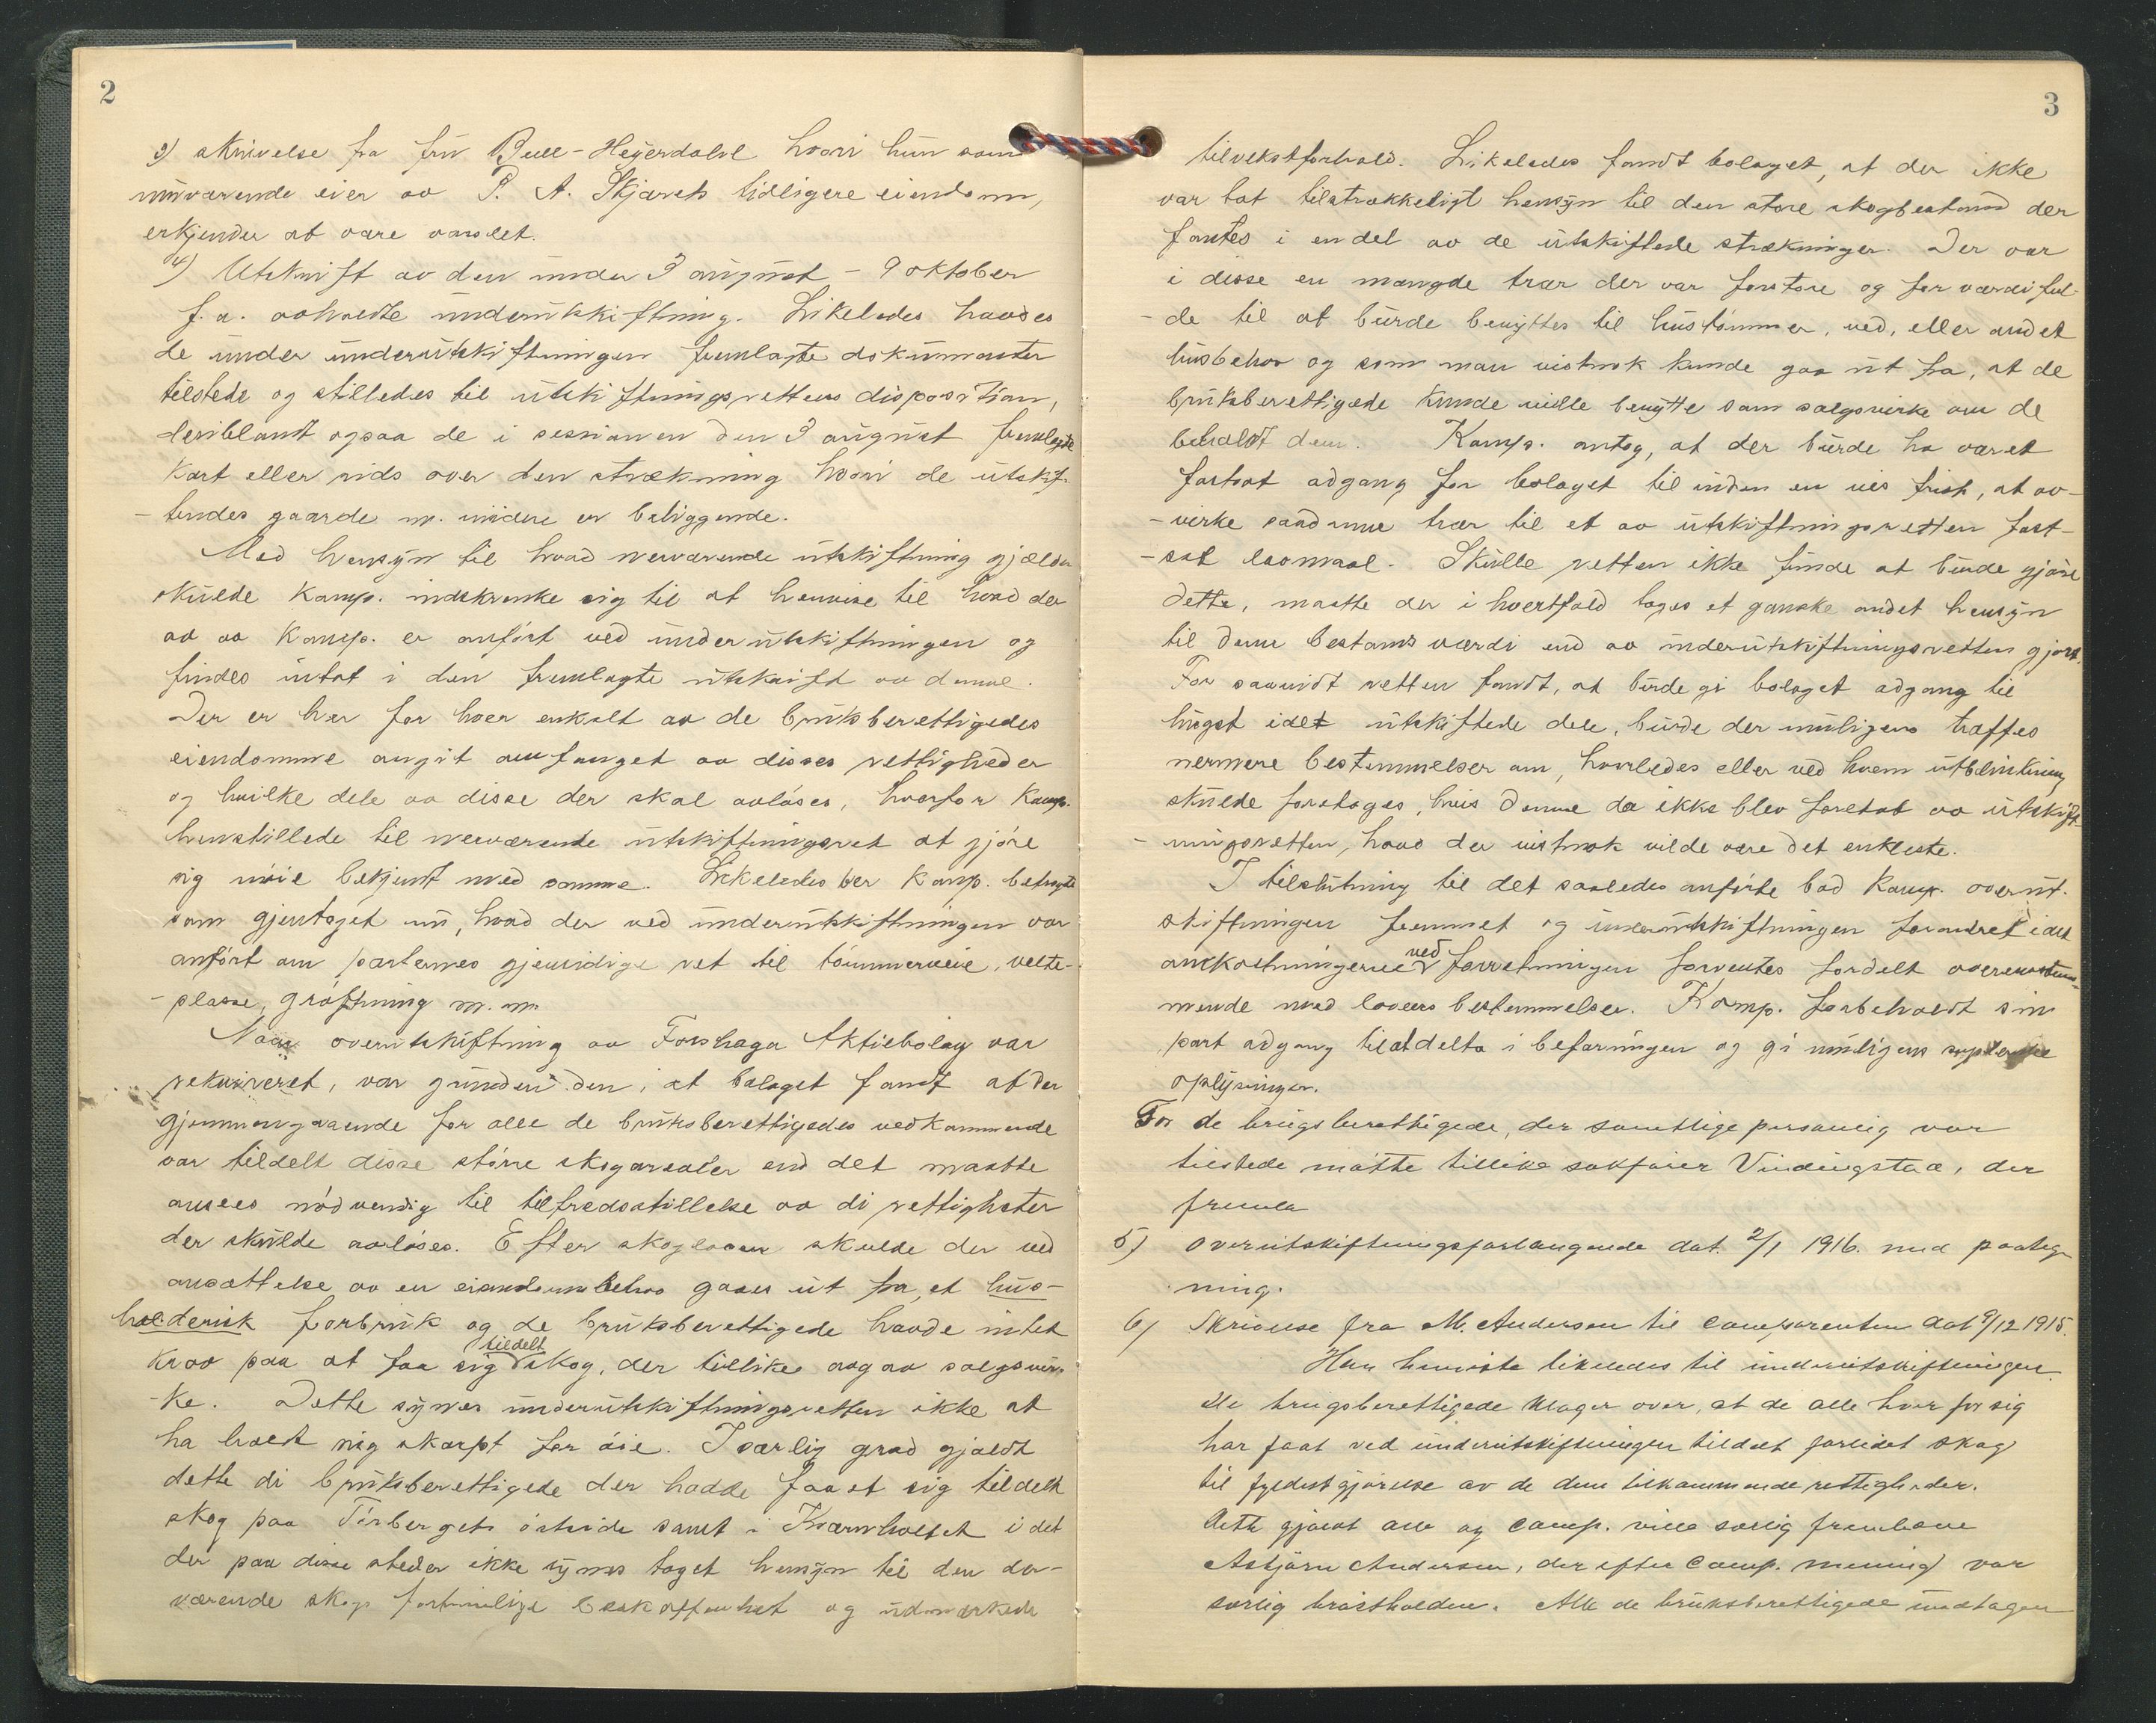 2
3) skrivelse fra fru Bull-Heyerdahl hvori hun som
nuværende eier av P. A. Skjærets tidligere eiendom,
erkjender at være varslet.
4) Utskrift av den under 3 august - 9 oktober
f.a. avholdte underutskiftning. Likeledes havdes
de under underutskiftningen fremlagte dokumenter
tilstede og stilledes til utskiftningsrettens disposition,
deriblandt ogsaa de i sessionen den 3 august fremlagte
kart eller rids over den strækning hvori de utskif-
- tendes gaarde m. videre er beliggende.
Med hensyn til hvad nerværende utskiftning gjælder
skulde Komp. indskrenke sig til at henvise til hvad der
av av Komp. er anført ved underutskiftningen og
findes intat i den fremlagte utskrift av denne.
Der er her for hver enkelt av de bruksberettigedes
eiendomme angit omfanget av disses rettigheder
og hvilke dele av disse der skal avløses, hvorfor Komp.
henstillede til nerværende utskiftningsret at gjøre
sig nøie bekjent med samme. Likeledes ber Komp. betragtet
som gjentaget nu, hvad der ved underutskiftningen var
anført om parternes gjensidige ret til tømmerveie, velte-
- plasse, grøftning m. m.
Naar overutskiftning av Forshaga Aktiebolag var
rekvireret, var grunden den, at bolaget fandt at der
gjennemgaaende for alle de bruksberettigedes vedkommende
var tildelt disse større skogarealer end det maatte
ansees nødvendig til tilfredsstillelse av di rettigheter
der skulde avløses. Efter skogloven skulde der ved
ansættelse av en eiendomsbehov gaaes ut fra, et hus-
holderisk forbruk og de bruksberettigede havde intet
krav paa at faa sig tildelt skog, der tillike avgav salgsvir-
- ke. Dette synes underutskiftningsretten ikke at
ha holdt sig skarpt for øie. I særlig grad gjaldt
dette di bruksberettigede der hadde faaet sig tildelt
skog paa Torbergets østside samt i Kværnholtet idet
der paa disse steder ikke synes taget hensyn til den der-
værende skogs fortrinlige beskaffenhet og udmerkede
3
tilvekstforhold. Likeledes fandt bolaget, at der ikke
var tat tilstrækkeligt hensyn til den store skogbestand der
fantes i endel av de utskiftede strækninger. Der var
i disse en mængde trær der var for store og for værdiful-
- de til at burde benyttes til hustømmer, ved, eller andet
husbehov og som man vistnok kunde gaa ut fra, at de
bruksberettigede kunde ville benytte som salgsvirke om de
beholdt dem. Komp. antog, at der burde ha været
fastsat adgang for bolaget til inden en vis frist, at av-
- virke saadanne trær til et av utskiftningsretten fast-
- sat lavmaal. Skulle retten ikke finde at burde gjøre
dette, maatte der i hvertfald tages et ganske andet hensyn
til denne bestands værdi end av underutskiftningsretten gjort.
For saavidt retten fandt, at burde gi bolaget adgang til
hugst i det utskiftede dele, burde der muligens træffes
nermere bestemmelser om, hvorledes eller ved hvem utblinkning
skulde foretages, hvis denne da ikke blev foretat av utskift-
- ningsretten, hvad der vistnok vilde være det enkleste.
I tilslutning til det saaledes anførte bad Komp. overut-
skiftningen fremmet og underutskiftningen forandret idet
omkostningerne ved forretningen forventes fordelt overenstem-
mende med lovens bestemmelser. Komp. forbeholdt sin
part adgang til at delta i befaringen og gi muligens
oplysninger.
For de brugsberettigede, der samtlige personlig var
tilstede møtte tillike sakfører Vindingstad, der
fremla
5) Overutskiftningsforlangende dat. 2/1 1916. med paateg-
ning.
6) Skrivelse fra M. Andersen til comparenten dat 9/12 1915.
Han henviste likeledes til underutskiftningen.
De brugsberettigede klager over, at de alle hver for sig
har faat ved underutskiftningen tildelt forlidet skog
til fyldestgjørelse av de dem tilkommende rettigheder.
Dette gjaldt alle og Comp. ville særlig fremheve
Asbjørn Andersen, der efter Comp. mening var
særlig brøstholden. Alle de bruksberettigede undtagen